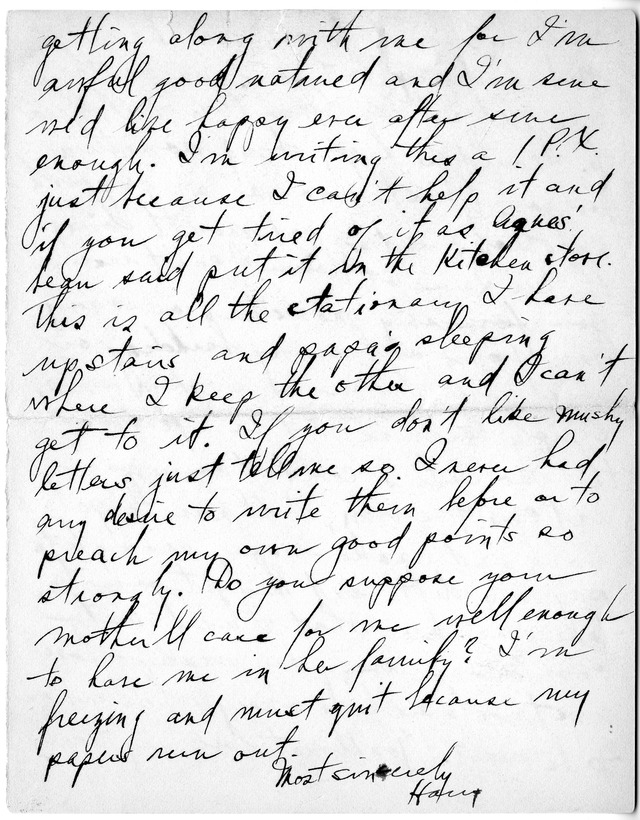 getting along with me for I'm
awful good natured and I'm sure
we'd live happy ever after sure
enough. I'm writing this a 1 P.X.
just because I can't help it and
if you get tired of it as Agnes'
beau said put it in the kitchen stove.
This is all the stationary I have
upstairs and papa's sleeping
where I keep the other and I can't
get to it. If you don't like mushy
letters just tell me so. I never had
any desire to write them before or to
preach my own good points so
strongly. Do you suppose your
mother'll care for me well enough
to have me in her family? I'm
freezing and must quit because my
papers run out.
Most sincerely
Harry